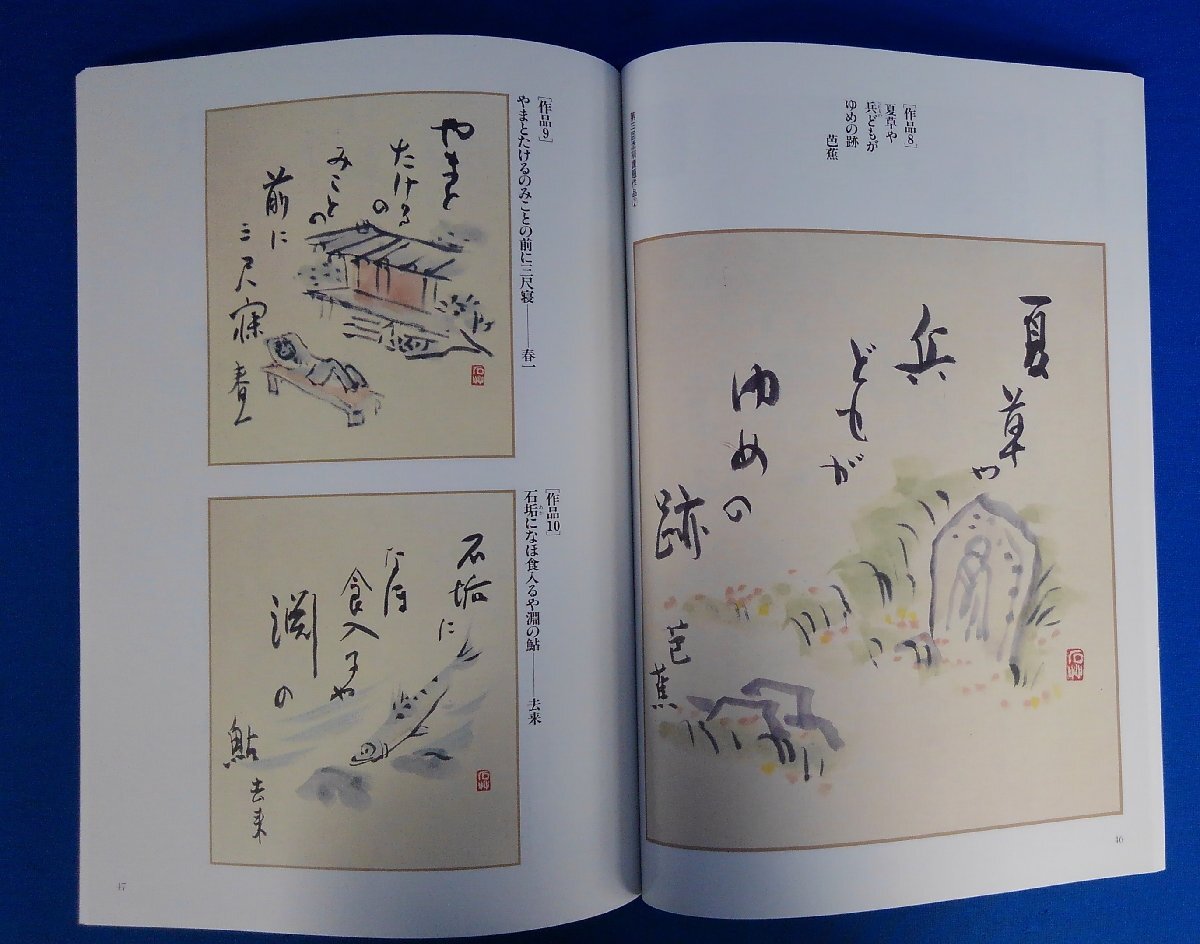 [作品8]
夏草や
兵どもが
ゆめの跡
芭蕉
夏
草や
兵
どもが
ゆめの
跡
芭蕉
46
[作品9]
やまとたけるのみことの前に三尺寝――春一
やまと
たけるの
みことの
前に
三尺寝
春一
[作品10]
石垢になほ食入るや淵の鮎――去来
石垢に
なほ
食入るや
渕の
鮎
去来
47